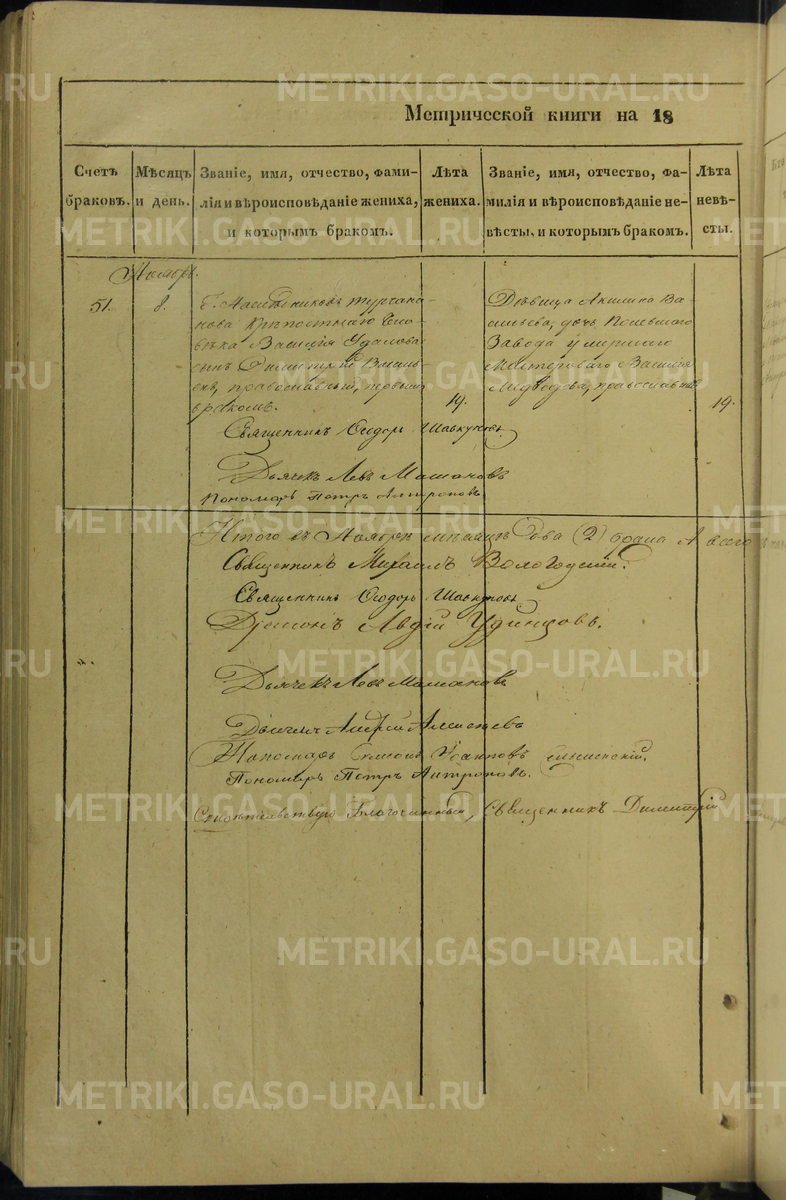 Метрической книги на 18
Счетъ браковъ.
Мѣсяцъ и день.
Званіе, имя, отчество, фами-
лія и вѣроисповѣданіе жениха,
и которымъ бракомъ.
Лѣта жениха.
Званіе, имя, отчество, фа-
милія и вѣроисповѣданіе не-
вѣсты, и которымъ бракомъ.
Лѣта невѣ-
сты.
Ноябрь.
51.
8.
Г. Наслѣдниковъ Турчани
нова крѣпостнаго чело-
вѣка Василія Удалова
сынъ Василь
евъ, православный, первымъ
бракомъ.
19.
Дѣвица Акилина Ва
сильева, дочь Полевскаго
Завода умершаго
Мастероваго Василія
Медведева, православная
19.
Священникъ Ѳеодоръ Шавкуновъ
Дьячекъ Левъ
Пономарь Петръ Антроповъ
Итого въ Ноябрѣ мѣсяцѣ два (2) брака А всего
Священникъ Михаилъ Вологодскій.
Священникъ Ѳеодоръ Шавкуновъ
Діаконъ Авдій Удинцовъ.
Дьячекъ Левъ
Дьячекъ Андрей Алексѣевъ
Пономарь
Пономарь Петръ Антроповъ.
Свидѣтельствую Благочинный, Священникъ Димитрій
METRIKI.GASO-URAL.RU